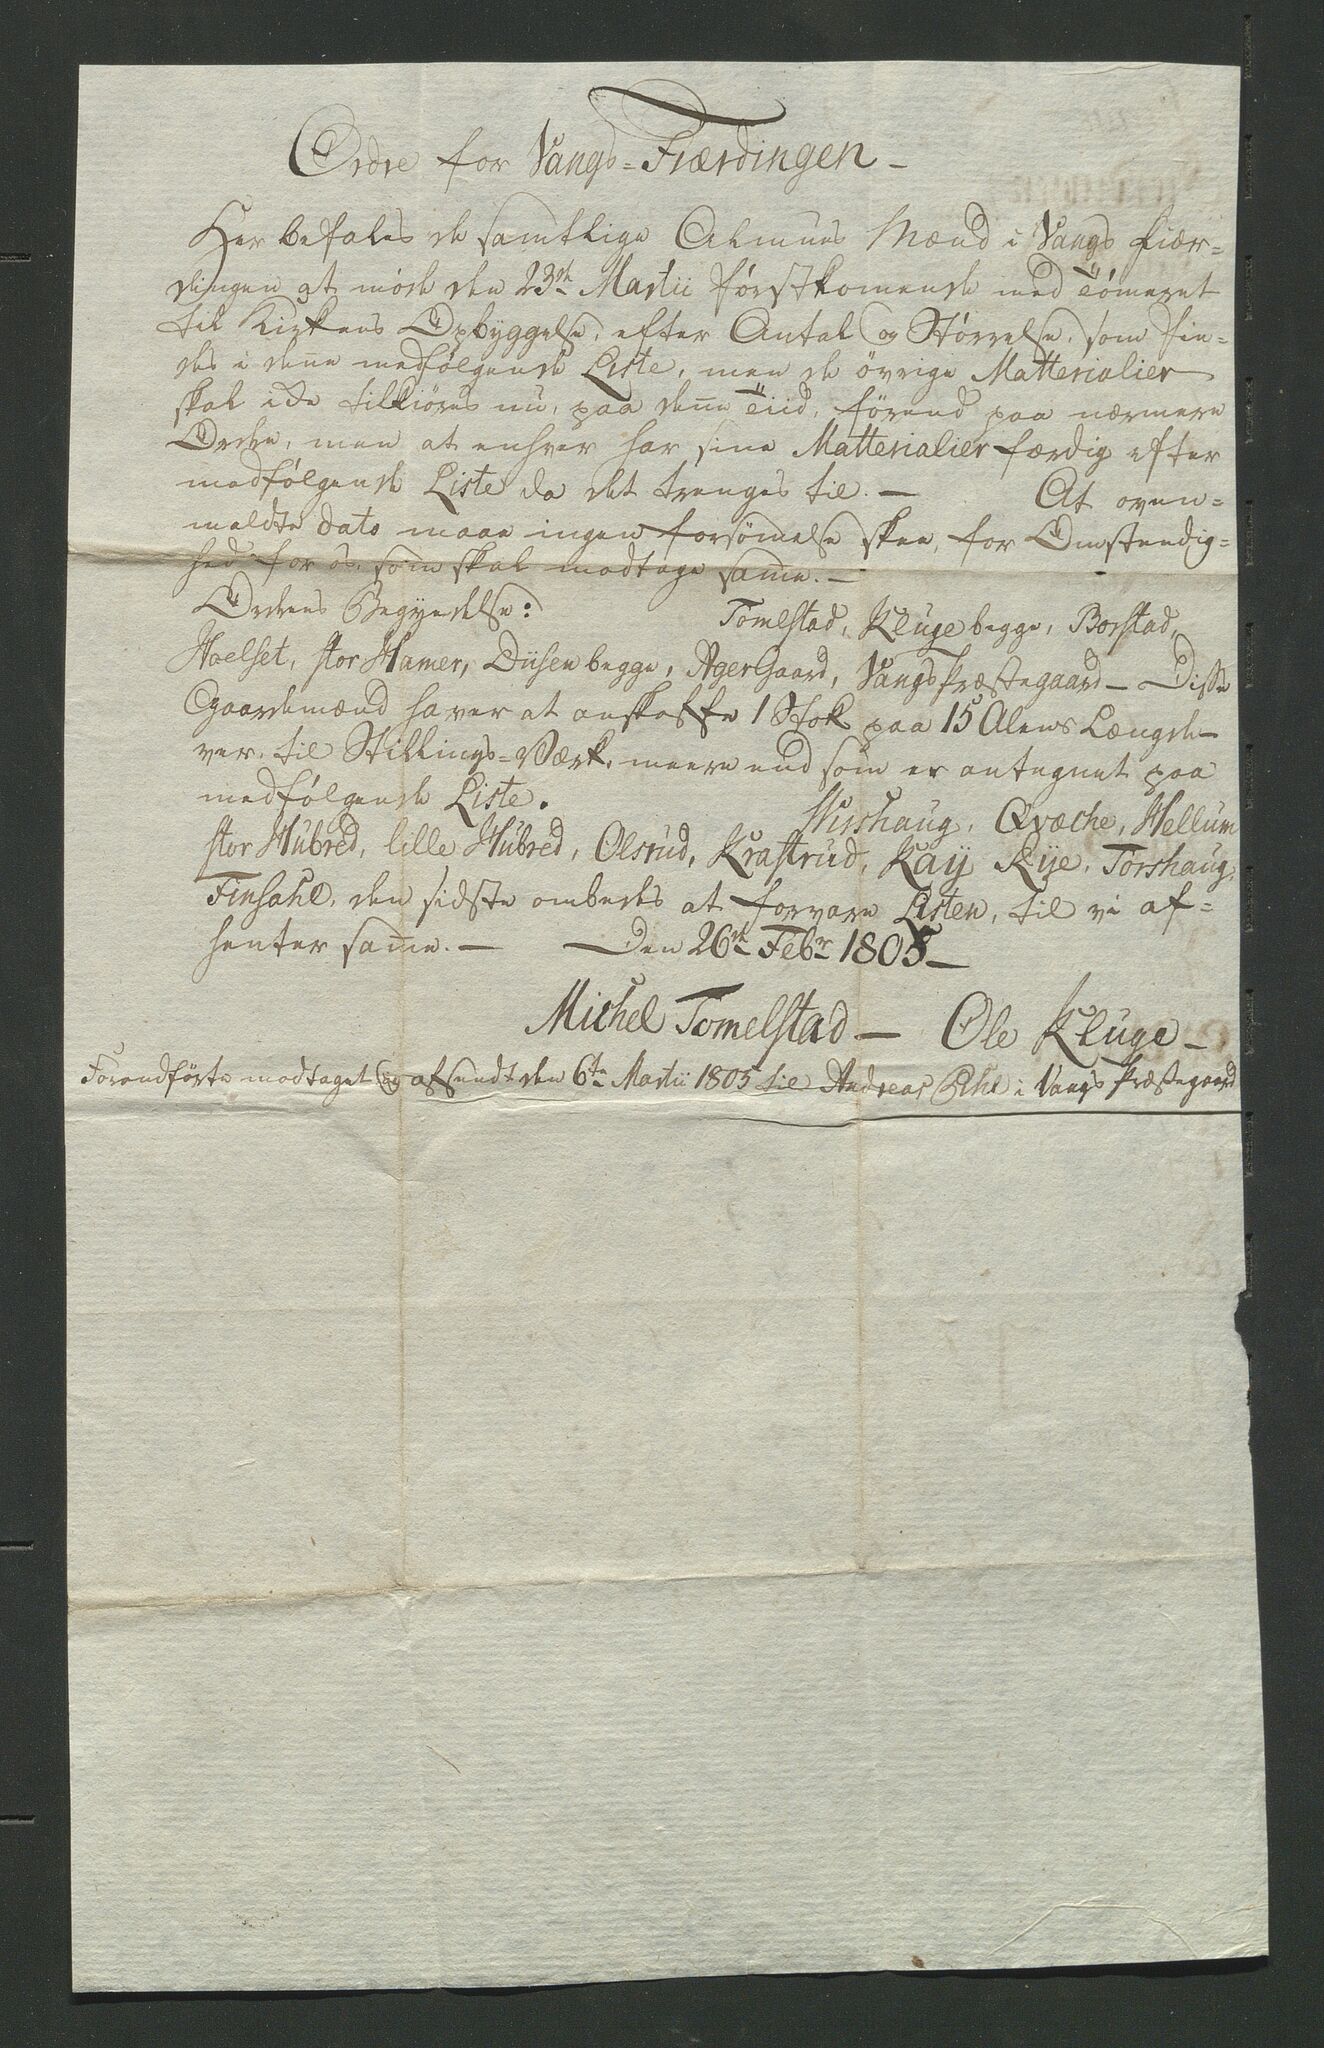 Ordre for Vangs=Fiærdingen –
Her befales de samtlige Almues Mænd i Vangs fiær=
dingen at möde den 23de Martii förstkomende med Tömeret
til Kirkens Opbyggelse, efter Antal og Størrelse, som fin=
des i dene medfølgende Liste, men de övrige Matterialier
skal icke tilkiöres nu, paa dene Tiid, förend paa nærmere
Ordre, men at enhver har sine Matterialier færdig efter
medfølgende Liste da det trenges til. – At oven=
meldte dato maae ingen forsömelse skee, for Omstendig=
hed for os, som skal modtage same. –
Ordrens Begyndelse: Tomlstad, Kluge begge, Borstad,
Hoelset, stor Hamer, Diisen begge, AgerGaard, Vangs Præstegaard – Disse
Gaardemænd haver at anskaffe 1 Stok paa 15 Alens Længde
ver, til Stillings=Værk, meere end som er antegnet paa
medfølgende Liste.
Hirshaug, Qvæche, Hellum
stor Hubred, lille Hubred, Olsrud, Krastrud, Kaÿ Rÿe, Torshaug,
Finsahl, den sidste ombedes at forvare Listen, til vi af=
henter same. – Den 26de Febr 1805 –
Michel Tomelstad – Ole Kluge –
Foranförte modtaget og afsendt den 6te Martii 1805 til Andreas i Vangs Præstegaard